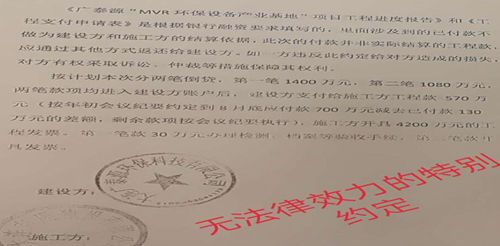 《广泰源“MVR环保设备产业基地”项目工程进度报告》和《工
程支付申请表》是根据银行融资要求填写的,里面涉及到的已付款不
做为建设方和施工方的结算依据,此次的付款并非实际结算的工程款,
应通过其他方式返还给建设方。如一方违反此约定给对方造成的损失,
对方有权采取诉讼、仲裁等措施保障其权利。
按计划本次分两笔倒贷,第一笔1400万元,第二笔1080万元,
两笔款项均进入建设方账户后,建设方支付给施工方工程款570万
元(按年初会议纪要约定到8月底应付款700万元减去已付款130
万元的差额,剩余款项按会议纪要执行),施工方开具4200万元的工
程发票。第一笔款30万元办理检测、档案等验收手续,第二笔款
具发票。
建设方:
源环保科技有限公司
施工方:
无法律效力的特别
约定